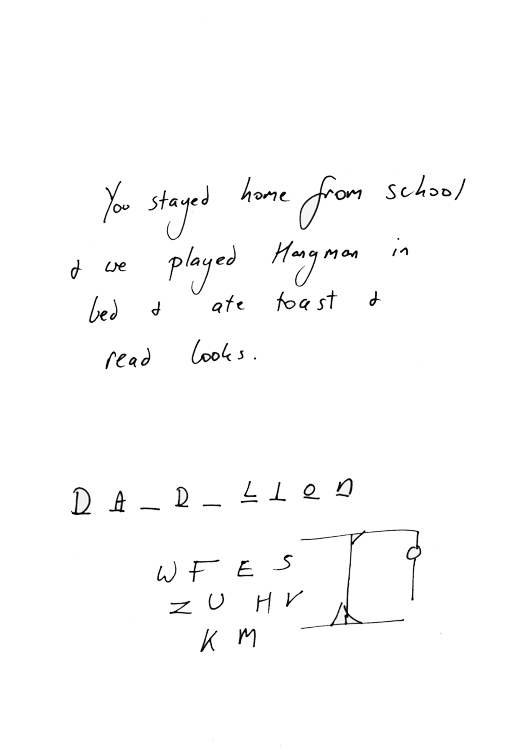 You stayed home from school
& we played Hangman in
bed & ate toast &
read books.
D A _ D _ L I O N
W F E S
Z U H V
K M